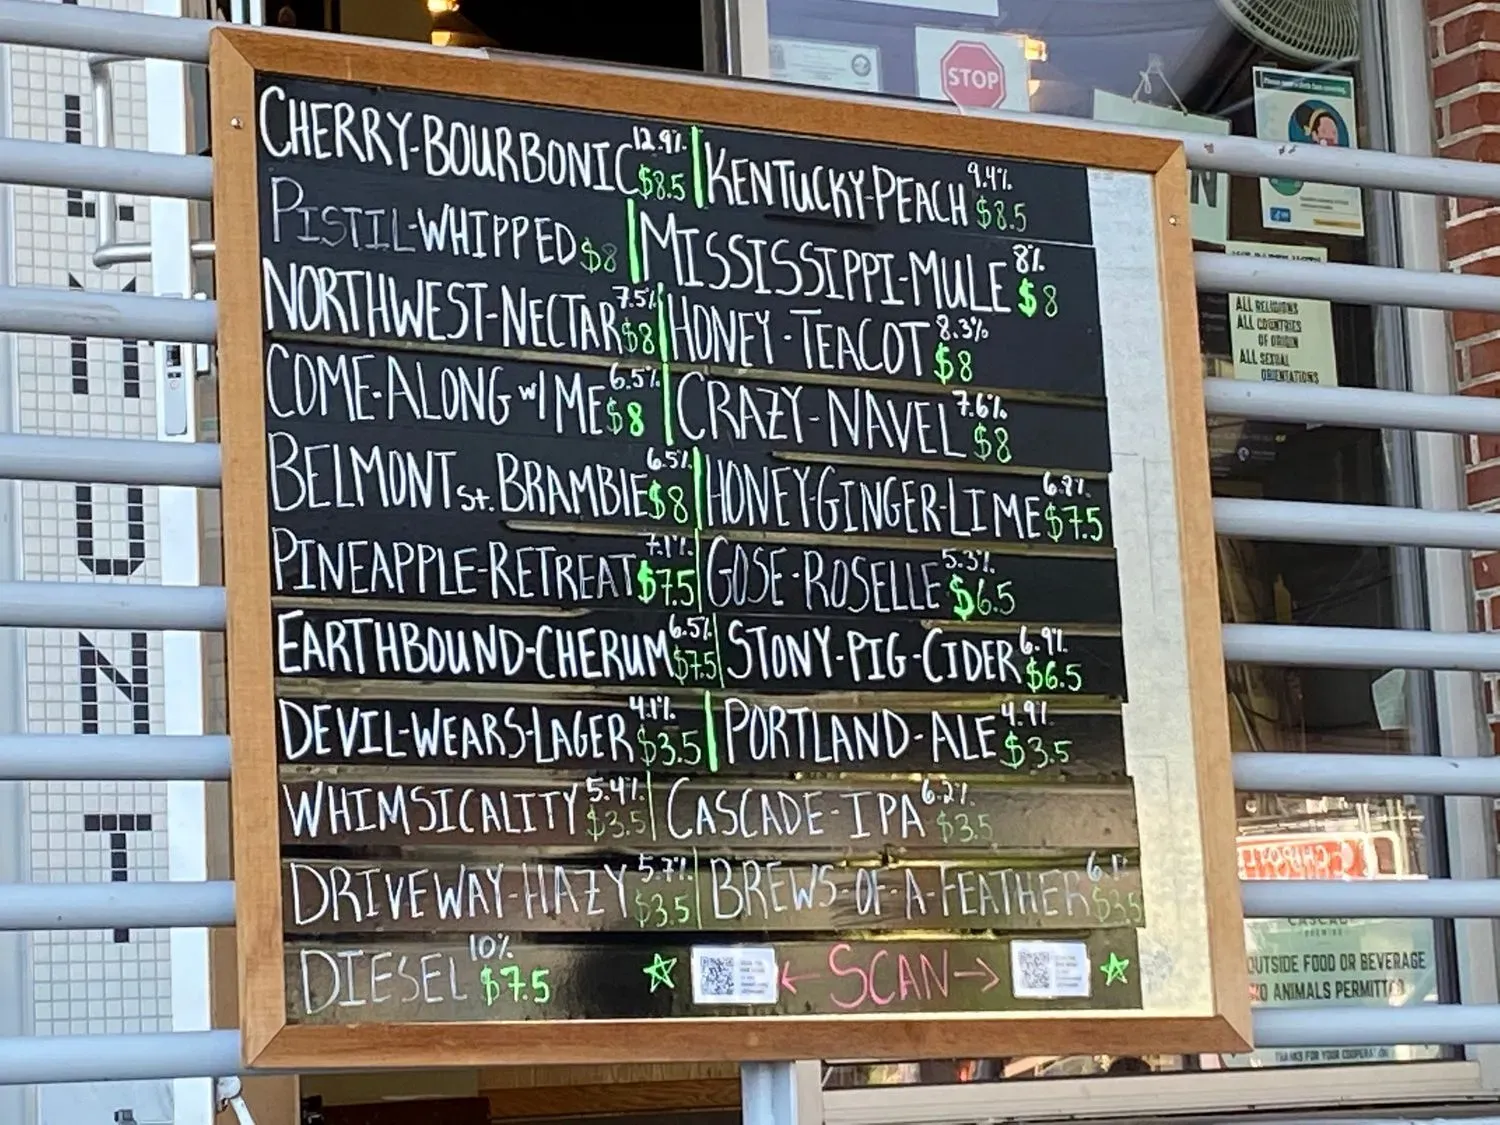 CHERRY-BOURBONIC 12.9% $8.5 | KENTUCKY-PEACH 9.4% $8.5
PISTIL-WHIPPED $8 | MISSISSIPPI-MULE 8% $8
NORTHWEST-NECTAR 7.5% $8 | HONEY-TEACOT 8.3% $8
COME-ALONG w/ ME 6.5% $8 | CRAZY-NAVEL 7.6% $8
BELMONT St. BRAMBLE 6.5% $8 | HONEY-GINGER-LIME 6.8% $7.5
PINEAPPLE-RETREAT 7.1% $7.5 | GOSE-ROSELLE 5.3% $6.5
EARTHBOUND-CHERUM 6.5% $7.5 | STONY-PIG-CIDER 6.9% $6.5
DEVIL-WEARS-LAGER 4.1% $3.5 | PORTLAND-ALE 4.9% $3.5
WHIMSICALITY 5.4% $3.5 | CASCADE-IPA 6.2% $3.5
DRIVEWAY-HAZY 5.7% $3.5 | BREWS-OF-A-FEATHER $3.5
DIESEL 10% $7.5
← SCAN →
STOP
ALL RELIGIONS
ALL COUNTRIES
OF ORIGIN
ALL SEXUAL
ORIENTATIONS
OUTSIDE FOOD OR BEVERAGE
NO ANIMALS PERMITTED
THANKS FOR YOUR COOPERATION
UNT